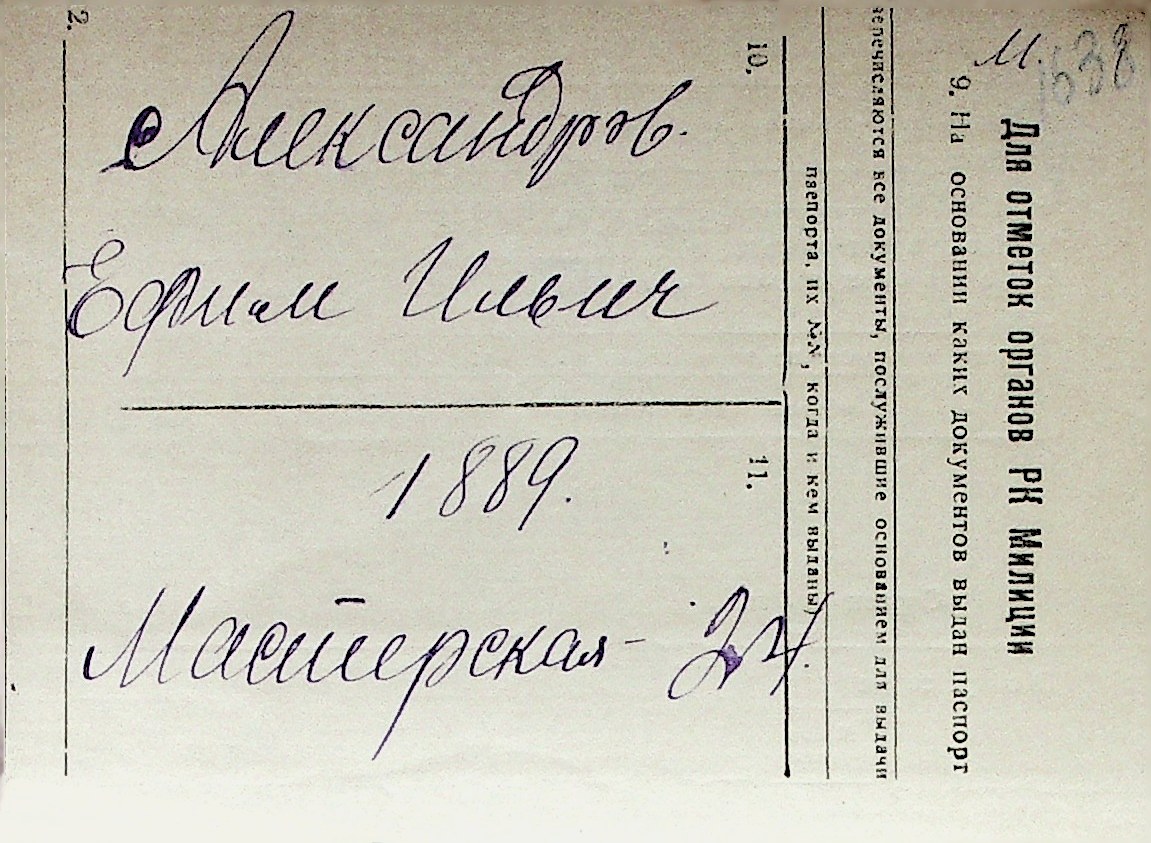 Александров
Ефим Ильич
1889.
Мастерская - 24.
М. 1638
Для отметок органов РК Милиции
9. На основании каких документов выдан паспорт
перечисляются все документы, послужившие основанием для выдачи
паспорта, их №№, когда и кем выданы)
10.
11.
2.